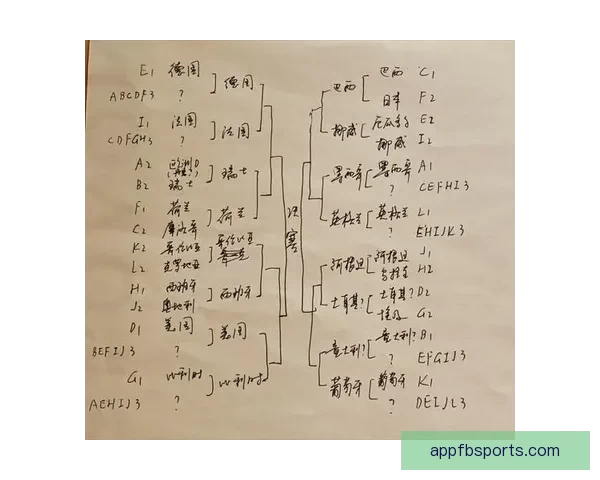 E1 德国
ABCDF3 ?
德国
I1 法国
CDFGH3 ?
法国
A2 欧洲D
B2 瑞士
瑞士
F1 荷兰
C2 摩洛哥
荷兰
K2 哥伦比亚
L2 克罗地亚
哥伦比亚
H1 西班牙
J2 奥地利
西班牙
D1 美国
BEFIJ3 ?
美国
G1 比利时
AEHIJ3 ?
比利时
决赛
巴西 巴西 C1
日本 F2
挪威 厄瓜多尔 E2
挪威 I2
墨西哥 墨西哥 A1
? CEFHI3
英格兰 英格兰 L1
? EHIJK3
阿根廷 阿根廷 J1
乌拉圭 H2
土耳其? 土耳其? D2
埃及 G2
意大利? 意大利? B1
? EFGIJ3
葡萄牙 葡萄牙 K1
? DEIJL3
appfbsports.com